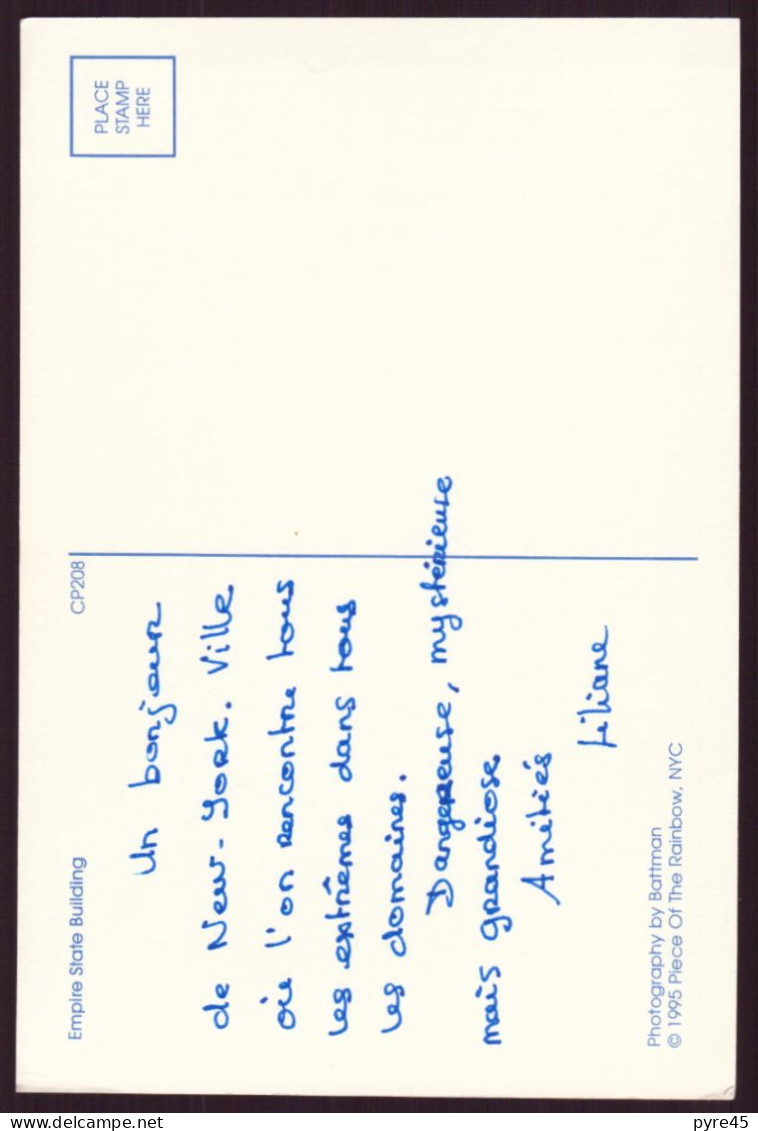 Empire State Building
CP208
PLACE
STAMP
HERE
Un bonjour
de New-York. Ville
où l'on rencontre tous
les extrêmes dans tous
les domaines.
Dangereuse, mystérieuse
mais grandiose
Amitiés
Liliane
Photography by Battman
© 1995 Piece Of The Rainbow, NYC
pyre45